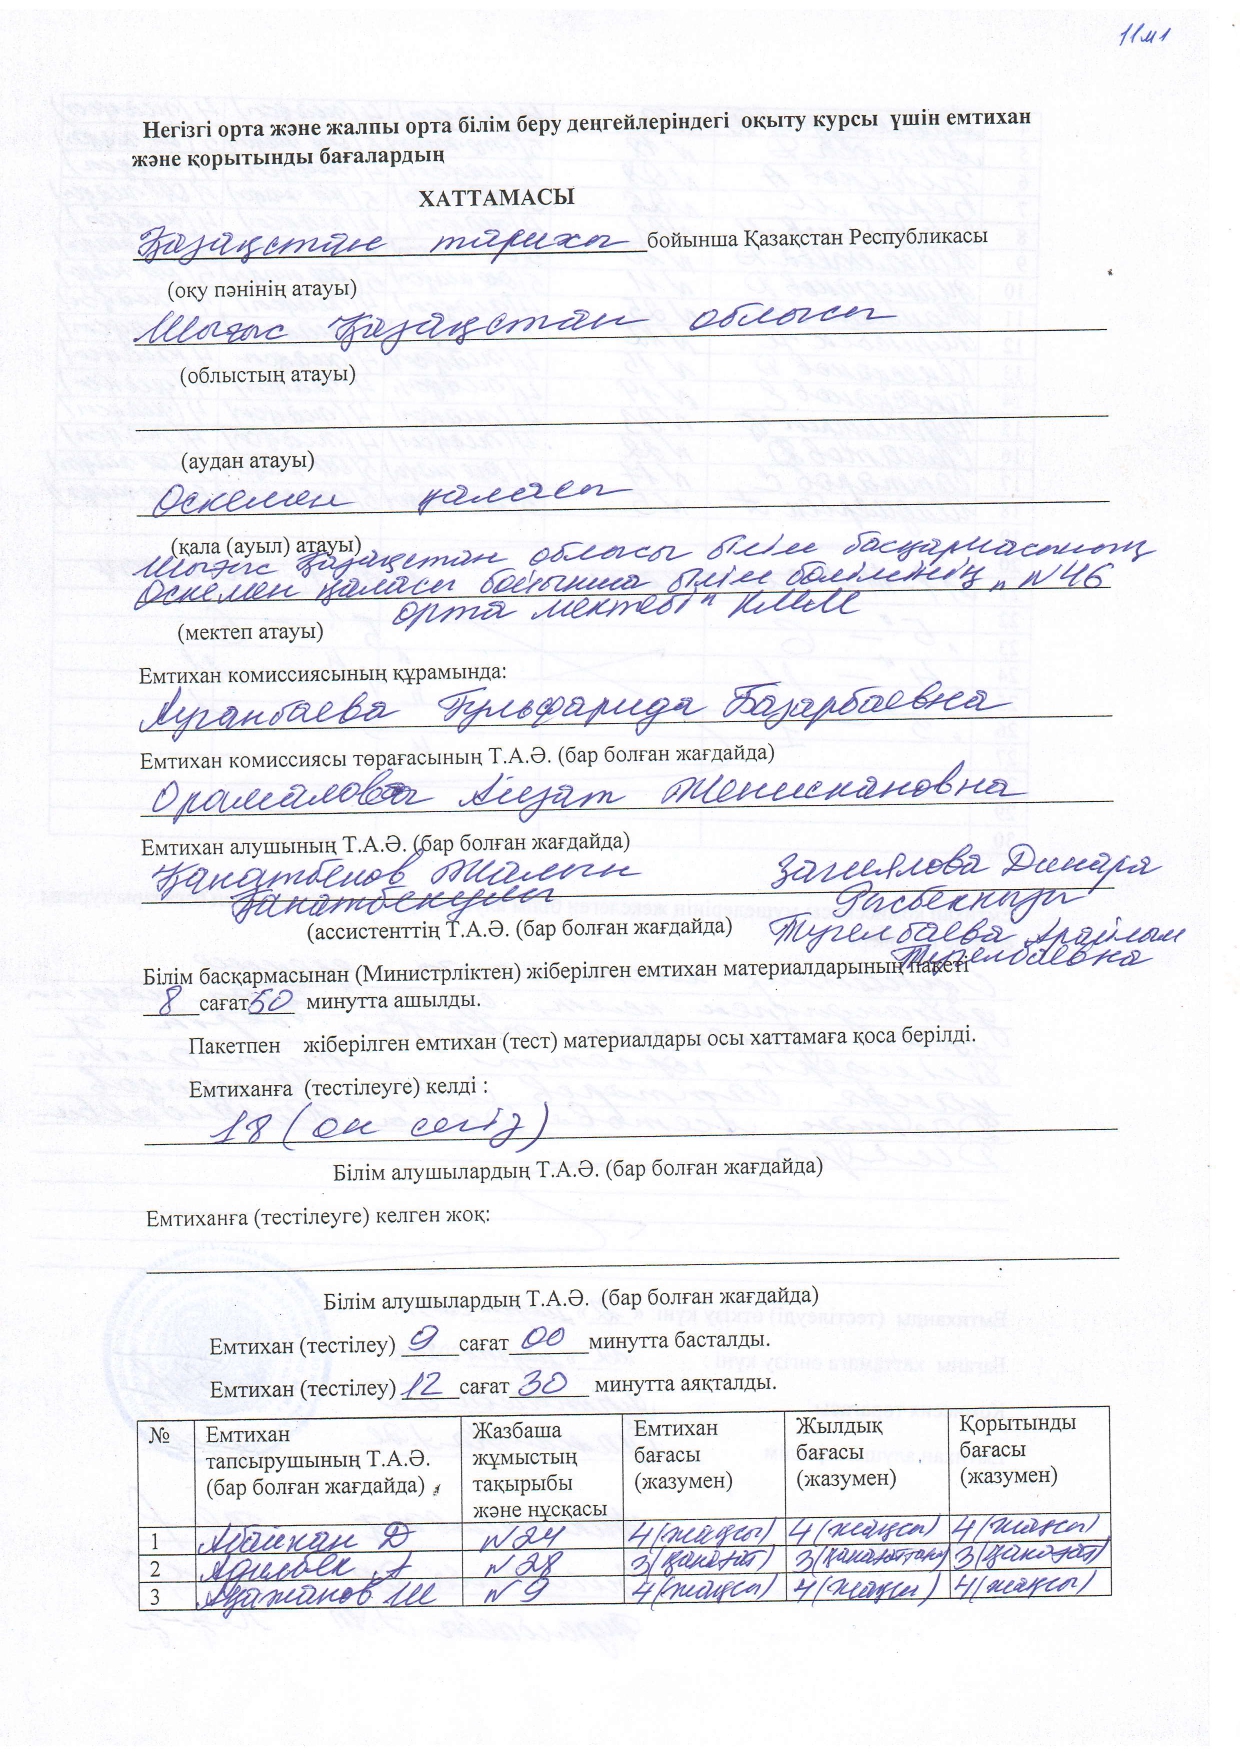 11м1
Негізгі орта және жалпы орта білім беру деңгейлеріндегі оқыту курсы үшін емтихан
және қорытынды бағалардың
ХАТТАМАСЫ
Қазақстан тарихы бойынша Қазақстан Республикасы
(оқу пәнінің атауы)
Шығыс Қазақстан облысы
(облыстың атауы)
(аудан атауы)
Өскемен қаласы
(қала (ауыл) атауы)
Шығыс Қазақстан облысы білім басқармасының
Өскемен қаласы бойынша білім бөлімінің "N46
орта мектебі" КММ
(мектеп атауы)
Емтихан комиссиясының құрамында:
Ауганбаева Гульфарида Базарбаевна
Емтихан комиссиясы төрағасының Т.А.Ә. (бар болған жағдайда)
Орамалова Айзат Женискановна
Емтихан алушының Т.А.Ә. (бар болған жағдайда)
Қанатбеков Жалын Загиялова Динара
Қанатбекұлы Расбекқызы
(ассистенттің Т.А.Ә. (бар болған жағдайда) Тугелбаева Арайлым
Тугелбаевна
Білім басқармасынан (Министрліктен) жіберілген емтихан материалдарының пакеті
8 сағат 50 минутта ашылды.
Пакетпен жіберілген емтихан (тест) материалдары осы хаттамаға қоса берілді.
Емтиханға (тестілеуге) келді :
18 (он сегіз)
Білім алушылардың Т.А.Ә. (бар болған жағдайда)
Емтиханға (тестілеуге) келген жоқ:
Білім алушылардың Т.А.Ә. (бар болған жағдайда)
Емтихан (тестілеу) 9 сағат 00 минутта басталды.
Емтихан (тестілеу) 12 сағат 30 минутта аяқталды.
№ Емтихан тапсырушының Т.А.Ә. (бар болған жағдайда) Жазбаша жұмыстың тақырыбы және нұсқасы Емтихан бағасы (жазумен) Жылдық бағасы (жазумен) Қорытынды бағасы (жазумен)
1 Абайхан Д N24 4 (жақсы) 4 (жақсы) 4 (жақсы)
2 Адилбек А N28 3 (қанағат) 3 (қанағаттан) 3 (қанағат)
3 Ағажанов Ш N9 4 (жақсы) 4 (жақсы) 4 (жақсы)